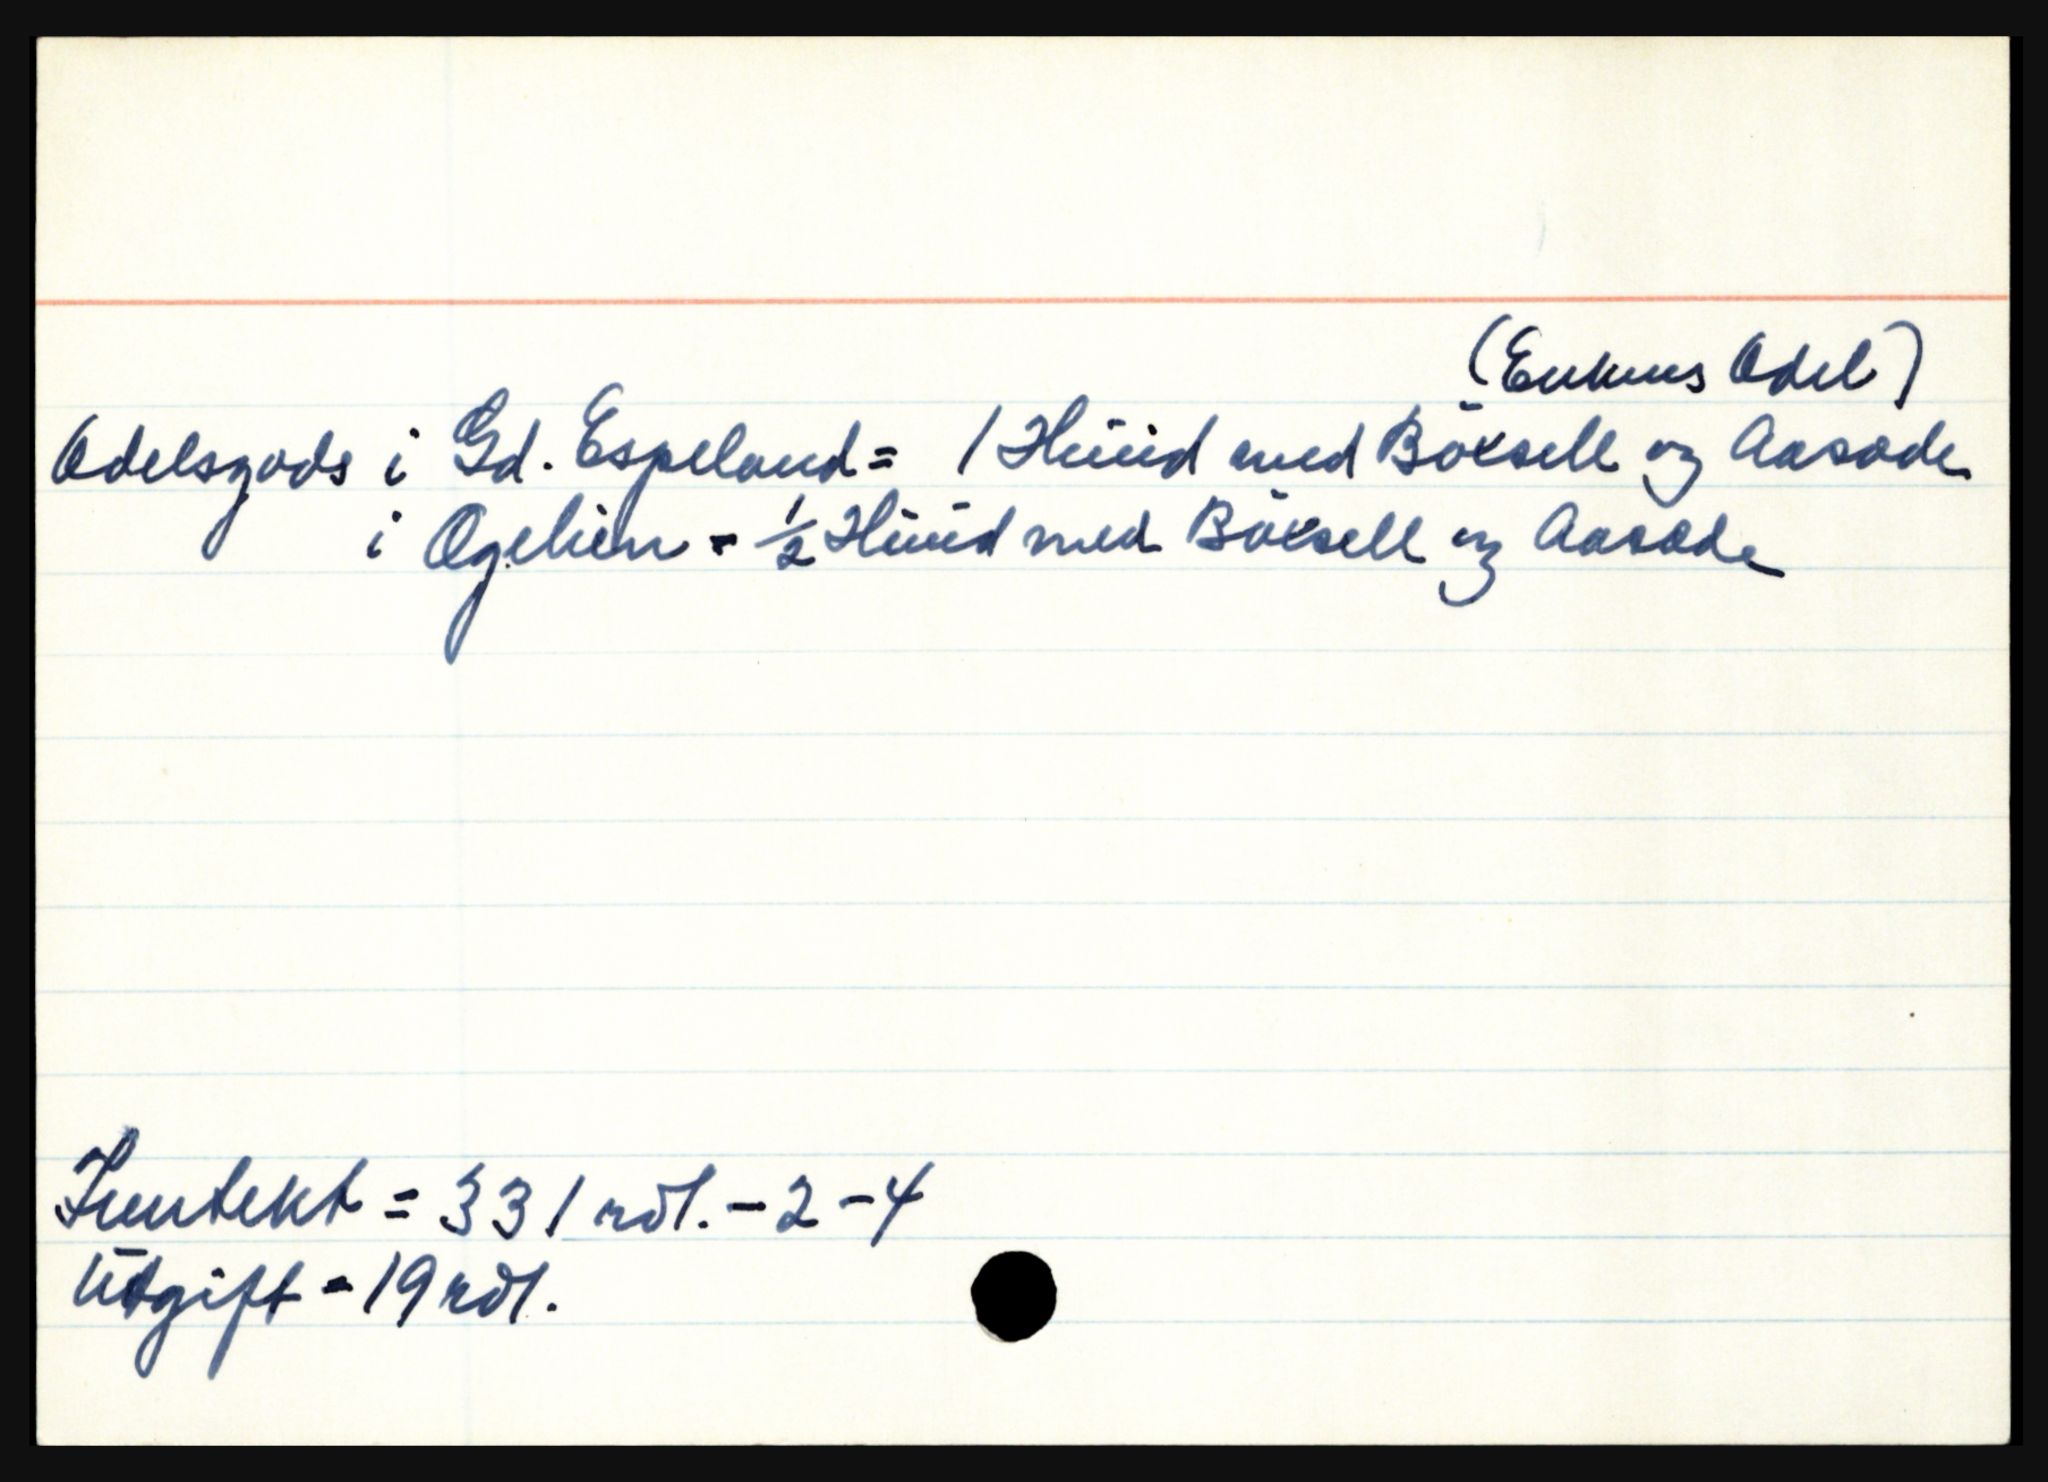 (Enkens Odel)
Odelsgods i Gd. Espeland = 1 Huud med Böxsell og Aasæde
i Øgehien = ½ Huud med Böxsell og Aasæde
Inntekt = 331 rdl. - 2 - 4
Utgift = 19 rdl.